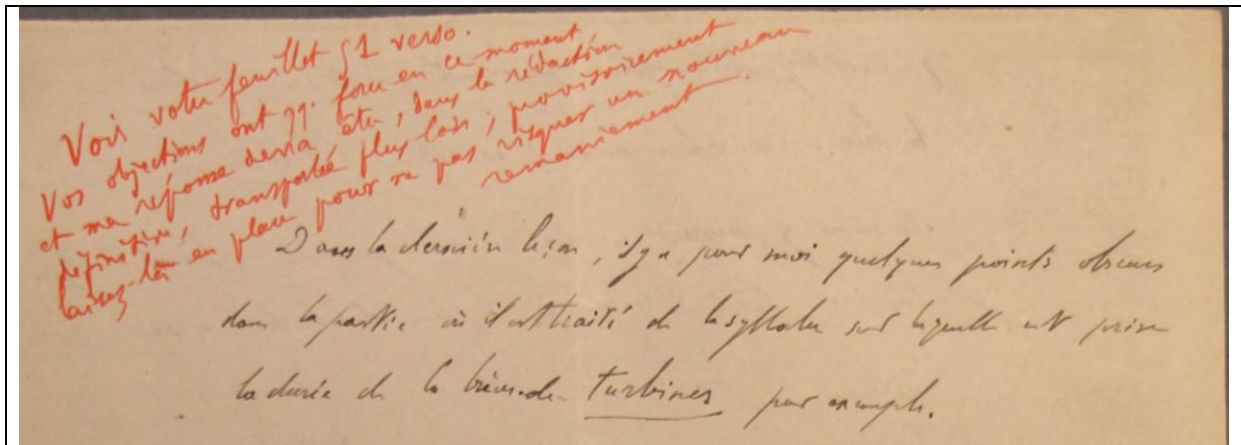 Voir votre feuillet 51 verso.
Vos objections ont qq. force en ce moment
et ma réponse devra être, dans la rédaction
définitive, transportée plus loin; provisoirement
laissez-la en place pour ne pas risquer un nouveau
remaniement.
Dans la dernière leçon, il y a pour moi quelques points obscurs
dans la partie où il est traité de la syllabe sur laquelle est prise
la durée de la brève de turbines par exemple.